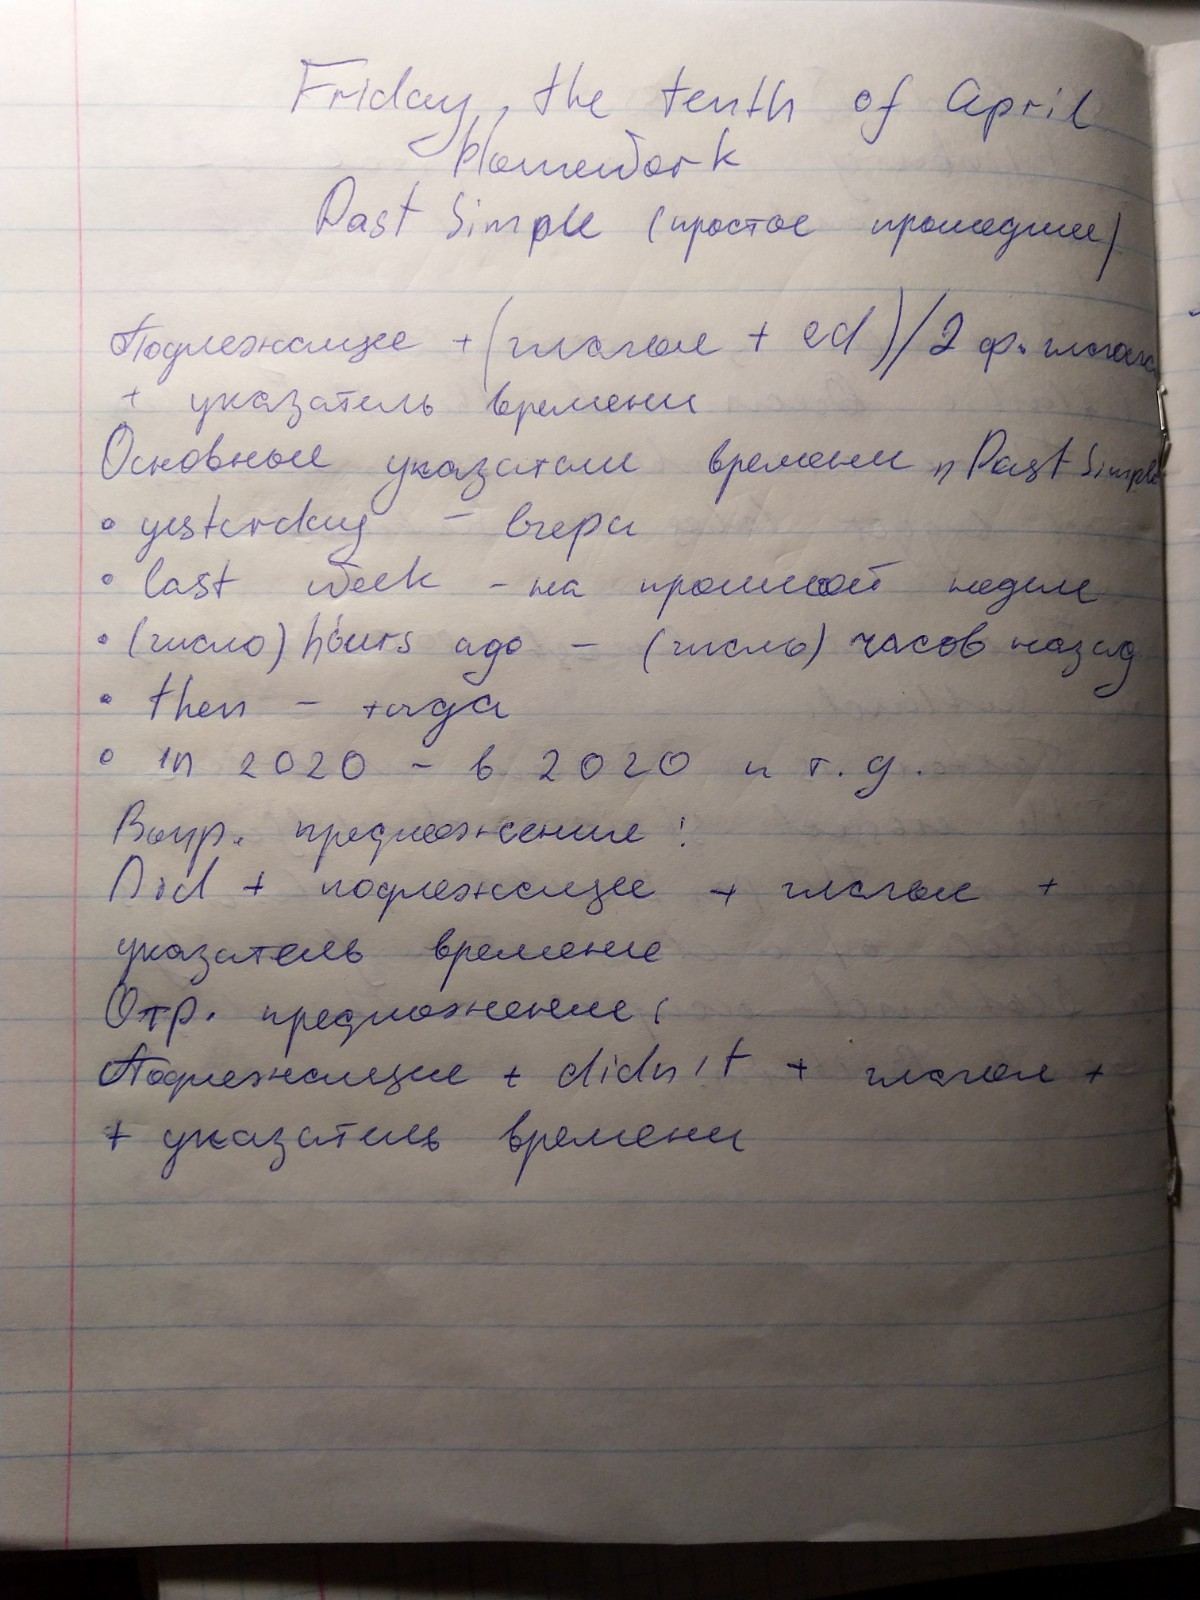 Friday, the tenth of April
Homework
Past Simple (простое прошедшее)
Подлежащее + (глагол + ed)/2 ф. глагола
+ указатель времени
Основные указатели времени в Past Simple
• yesterday - вчера
• last week - на прошлой неделе
• (число) hours ago - (число) часов назад
• then - тогда
• in 2020 - в 2020 и т.д.
Вопр. предложения:
Did + подлежащее + глагол +
указатель времени
Отр. предложение:
Подлежащее + didn't + глагол +
+ указатель времени